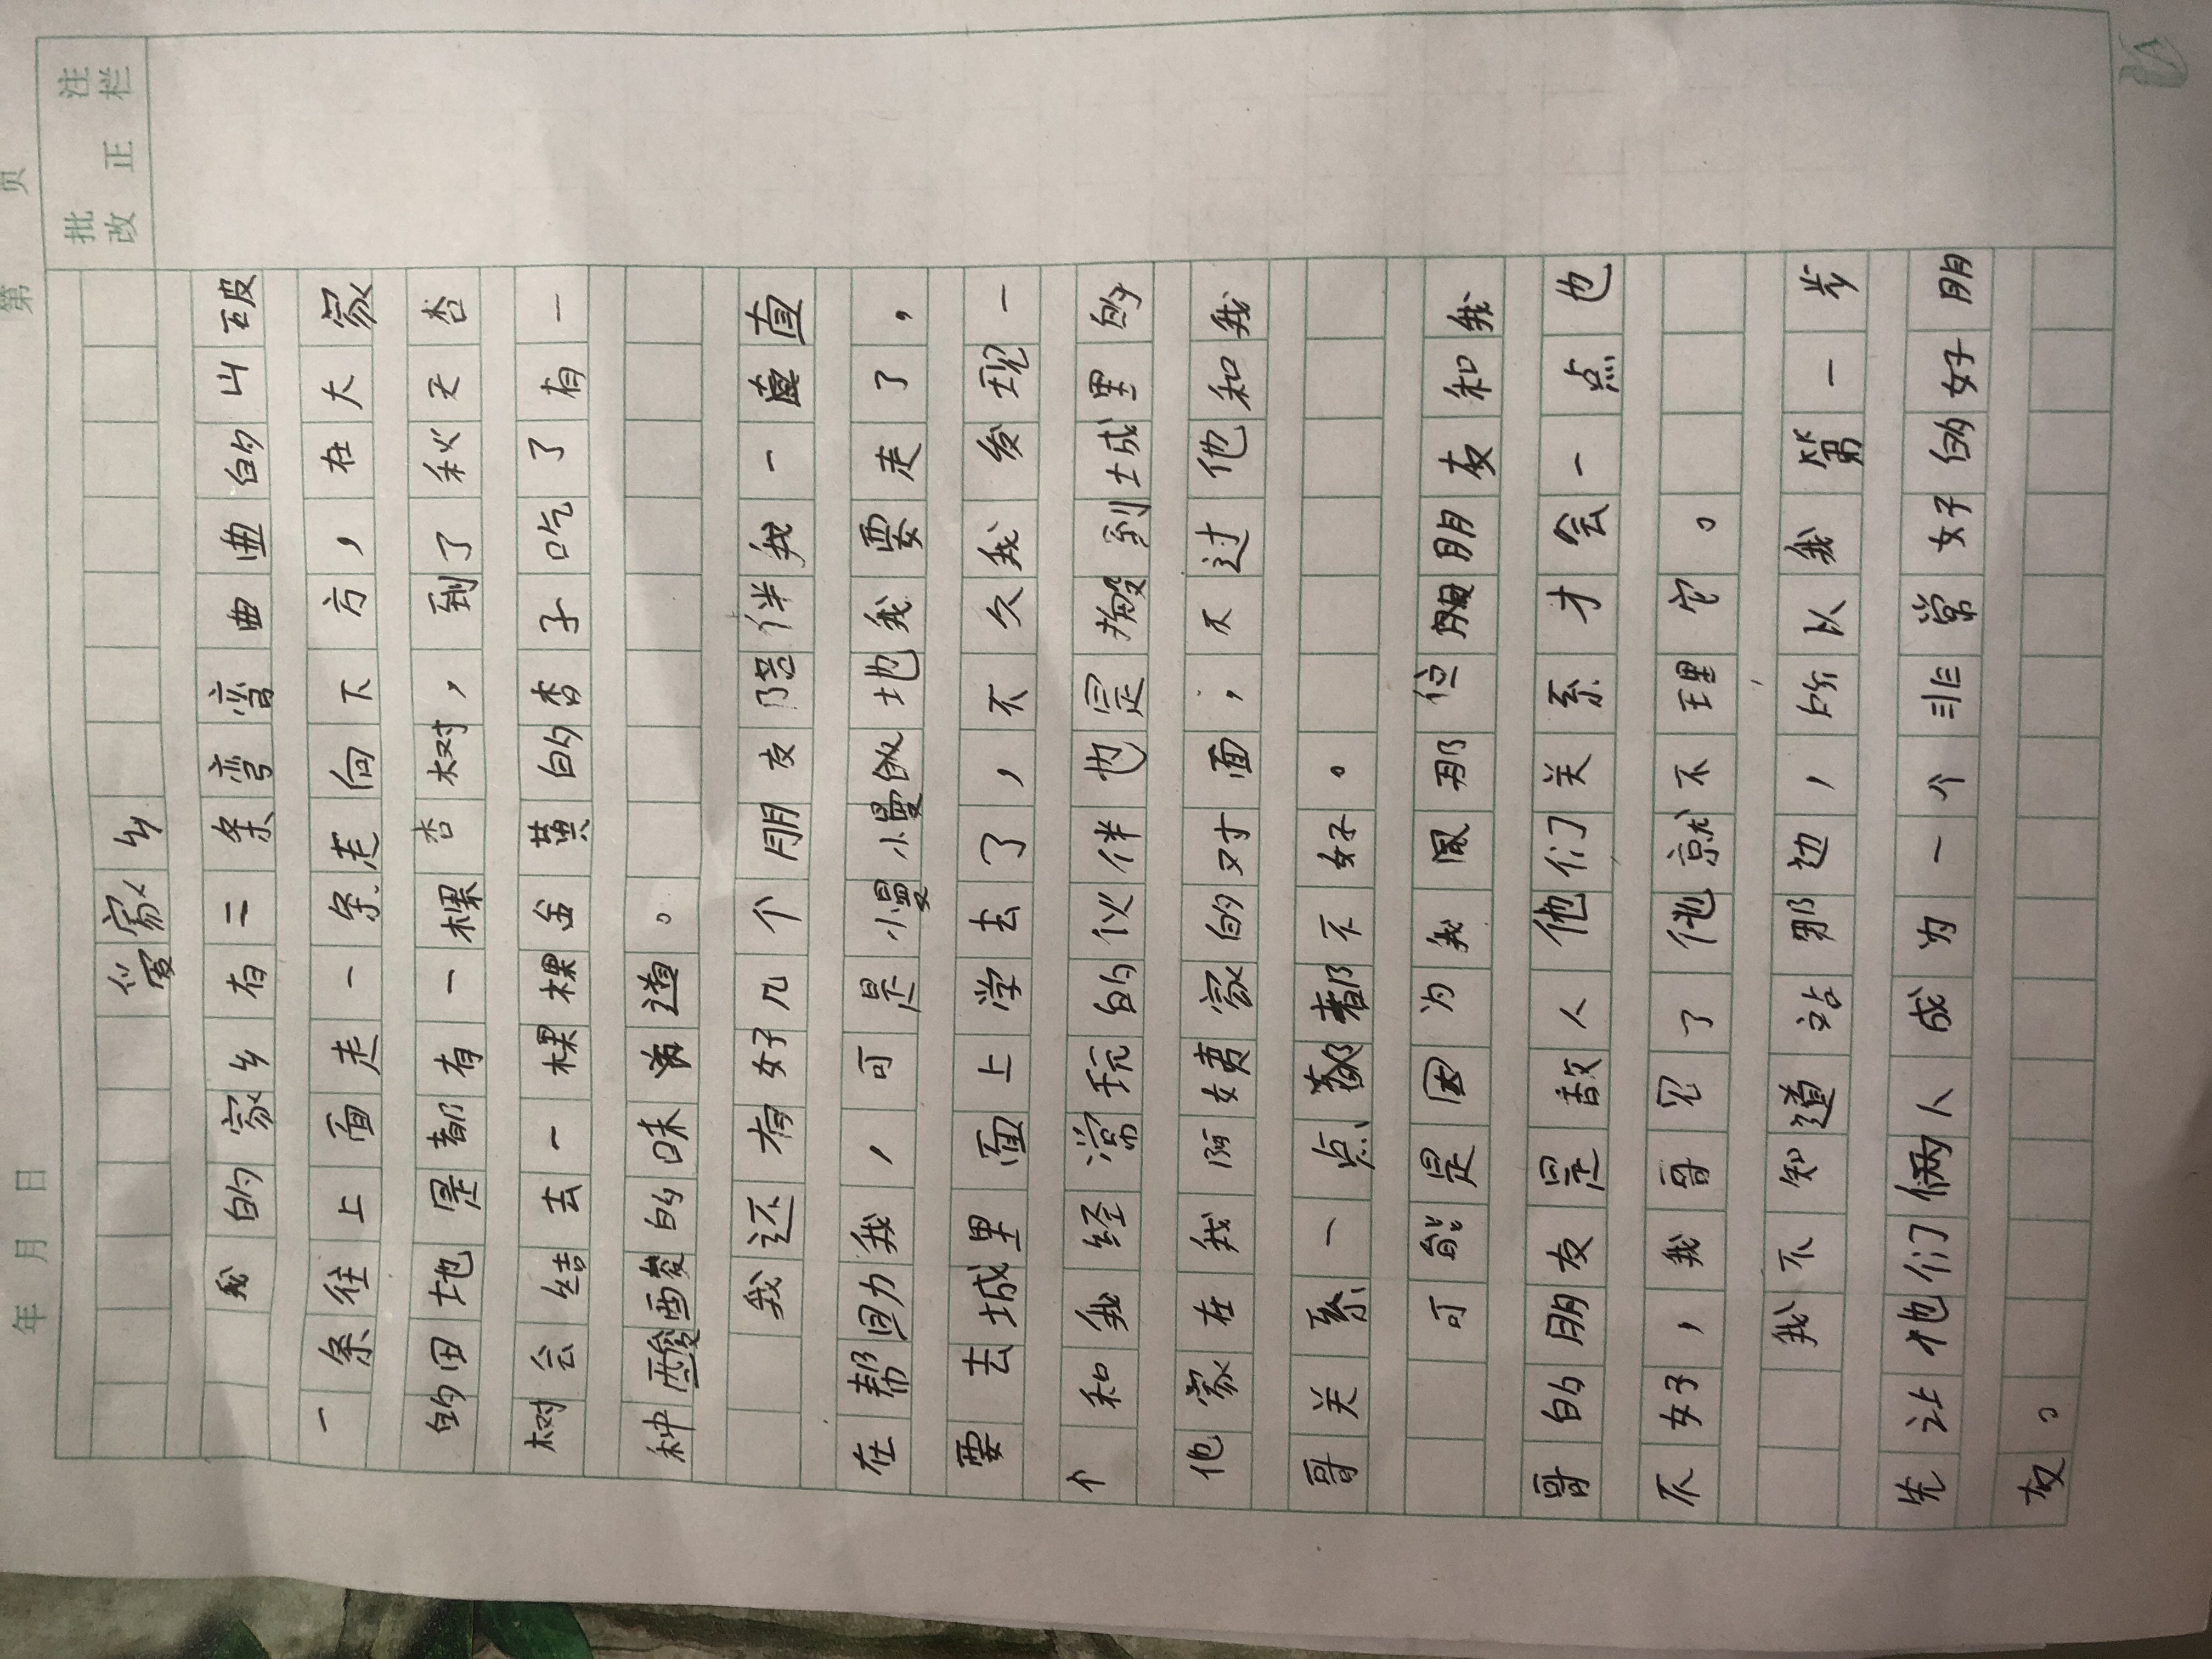 第 页
年 月 日
批 注
改 正 栏
家乡
我的家乡有二条弯弯曲曲的山破
一条往上面走一条走向下方，在大家
的田地里都有一棵杏树，到了秋天杏
树会结去一棵棵金黄的杏子吃了有一
种酸酸的味道。
我还有好几个朋友陪伴我一直
在帮助我，可是慢慢地我要走了，
要去城里面上学去了，不久我发现一
个和我经常玩的伙伴也是搬到城里的
他家在我阿姨家的对面，不过他和我
哥关系一点都不好。
可能是因为我因那位朋友和我
哥的朋友是敌人他们关系才会一点也
不好，我哥见了他就不理它。
我不知道站那边，所以我第一步
先让他们俩人成为一个非常好的好朋
友。